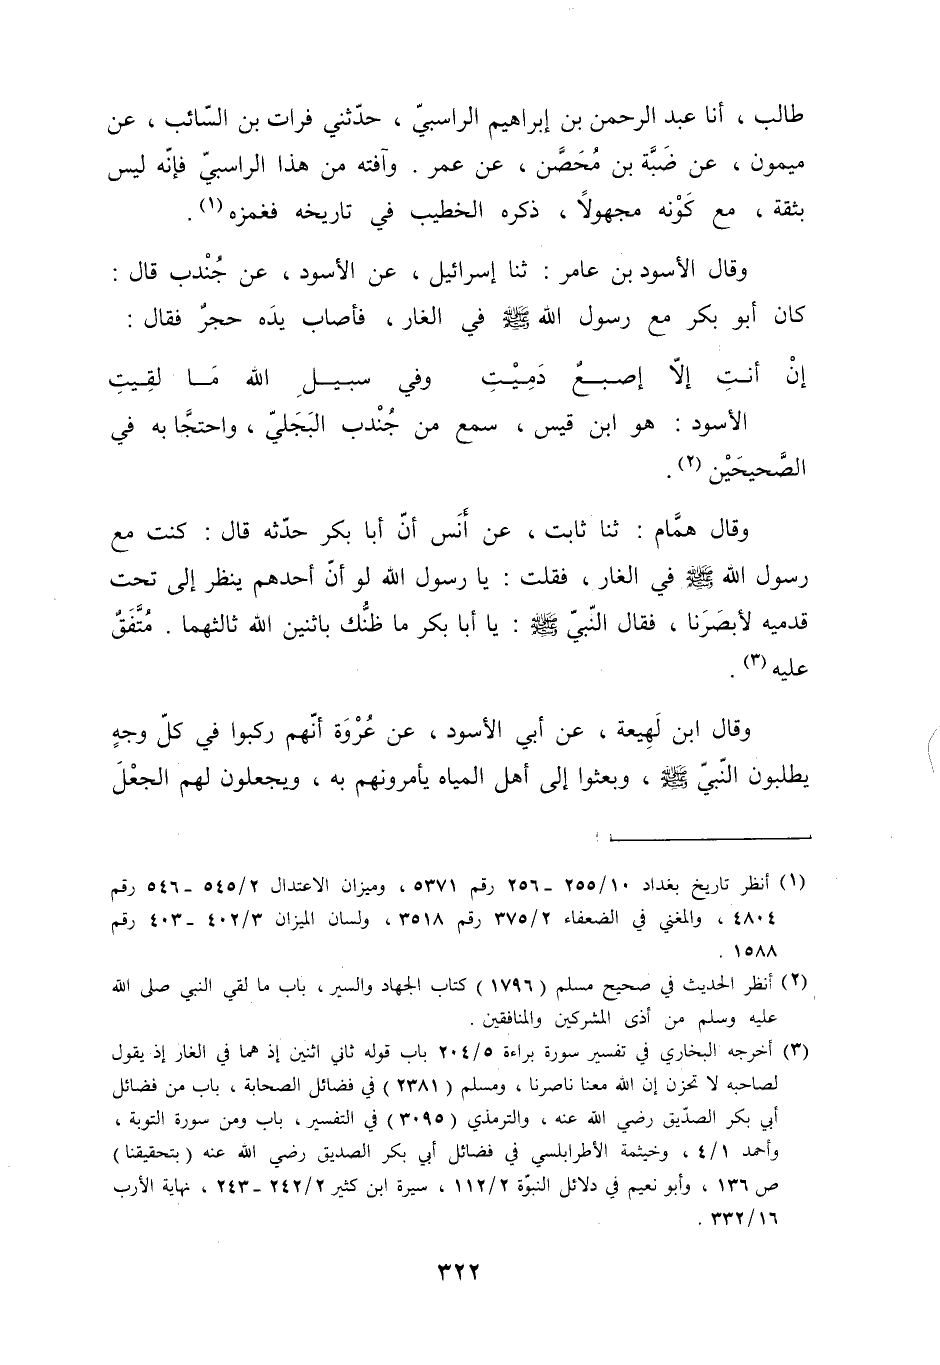 طالب ، أنا عبد الرحمن بن إبراهيم الراسبيّ ، حدّثني فرات بن السّائب ، عن
ميمون ، عن ضَبَّة بن مُحَصَّن ، عن عمر . وآفته من هذا الراسبيّ فإنّه ليس
بثقة ، مع كَوْنه مجهولاً ، ذكره الخطيب في تاريخه فغمزه (١) .
وقال الأسود بن عامر : ثنا إسرائيل ، عن الأسود ، عن جُنْدب قال :
كان أبو بكر مع رسول الله ﷺ في الغار ، فأصاب يدَه حجرٌ فقال :
إنْ أنـتِ إلاّ إصبـعٌ دَمِيْـتِ وفي سبيـلِ الله مَـا لقِيـتِ
الأسود : هو ابن قيس ، سمع من جُنْدب البَجَليّ ، واحتجَّا به في
الصَّحيحَيْن (٢) .
وقال همَّام : ثنا ثابت ، عن أَنَس أنّ أبا بكر حدّثه قال : كنت مع
رسول الله ﷺ في الغار ، فقلت : يا رسول الله لو أنّ أحدهم ينظر إلى تحت
قدميه لأبصَرَنا ، فقال النّبيّ ﷺ : يا أبا بكر ما ظنُّك باثنين الله ثالثهما . مُتَّفَقٌ
عليه (٣) .
وقال ابن لَهِيعة ، عن أبي الأسود ، عن عُرْوَة أنّهم ركبوا في كلّ وجهٍ
يطلبون النّبيّ ﷺ ، وبعثوا إلى أهل المياه يأمرونهم به ، ويجعلون لهم الجعْلَ
(١) أنظر تاريخ بغداد ١٠/٢٥٥ - ٢٥٦ رقم ٥٣٧١ ، وميزان الاعتدال ٢/٥٤٥ - ٥٤٦ رقم
٤٨٠٤ ، والمغني في الضعفاء ٢/٣٧٥ رقم ٣٥١٨ ، ولسان الميزان ٣/٤٠٢ - ٤٠٣ رقم
١٥٨٨ .
(٢) أنظر الحديث في صحيح مسلم (١٧٩٦) كتاب الجهاد والسير ، باب ما لقي النبي صلى الله
عليه وسلم من أذى المشركين والمنافقين .
(٣) أخرجه البخاري في تفسير سورة براءة ٥/٢٠٤ باب قوله ثاني اثنين إذ هما في الغار إذ يقول
لصاحبه لا تحزن إن الله معنا ناصرنا ، ومسلم (٢٣٨١) في فضائل الصحابة ، باب من فضائل
أبي بكر الصدّيق رضي الله عنه ، والترمذي (٣٠٩٥) في التفسير ، باب ومن سورة التوبة ،
وأحمد ١/٤ ، وخيثمة الأطرابلسي في فضائل أبي بكر الصديق رضي الله عنه (بتحقيقنا)
ص ١٣٦ ، وأبو نعيم في دلائل النبوّة ٢/١١٢ ، سيرة ابن كثير ٢/٢٤٢ - ٢٤٣ ، نهاية الأرب
١٦/٣٣٢ .
٣٢٢